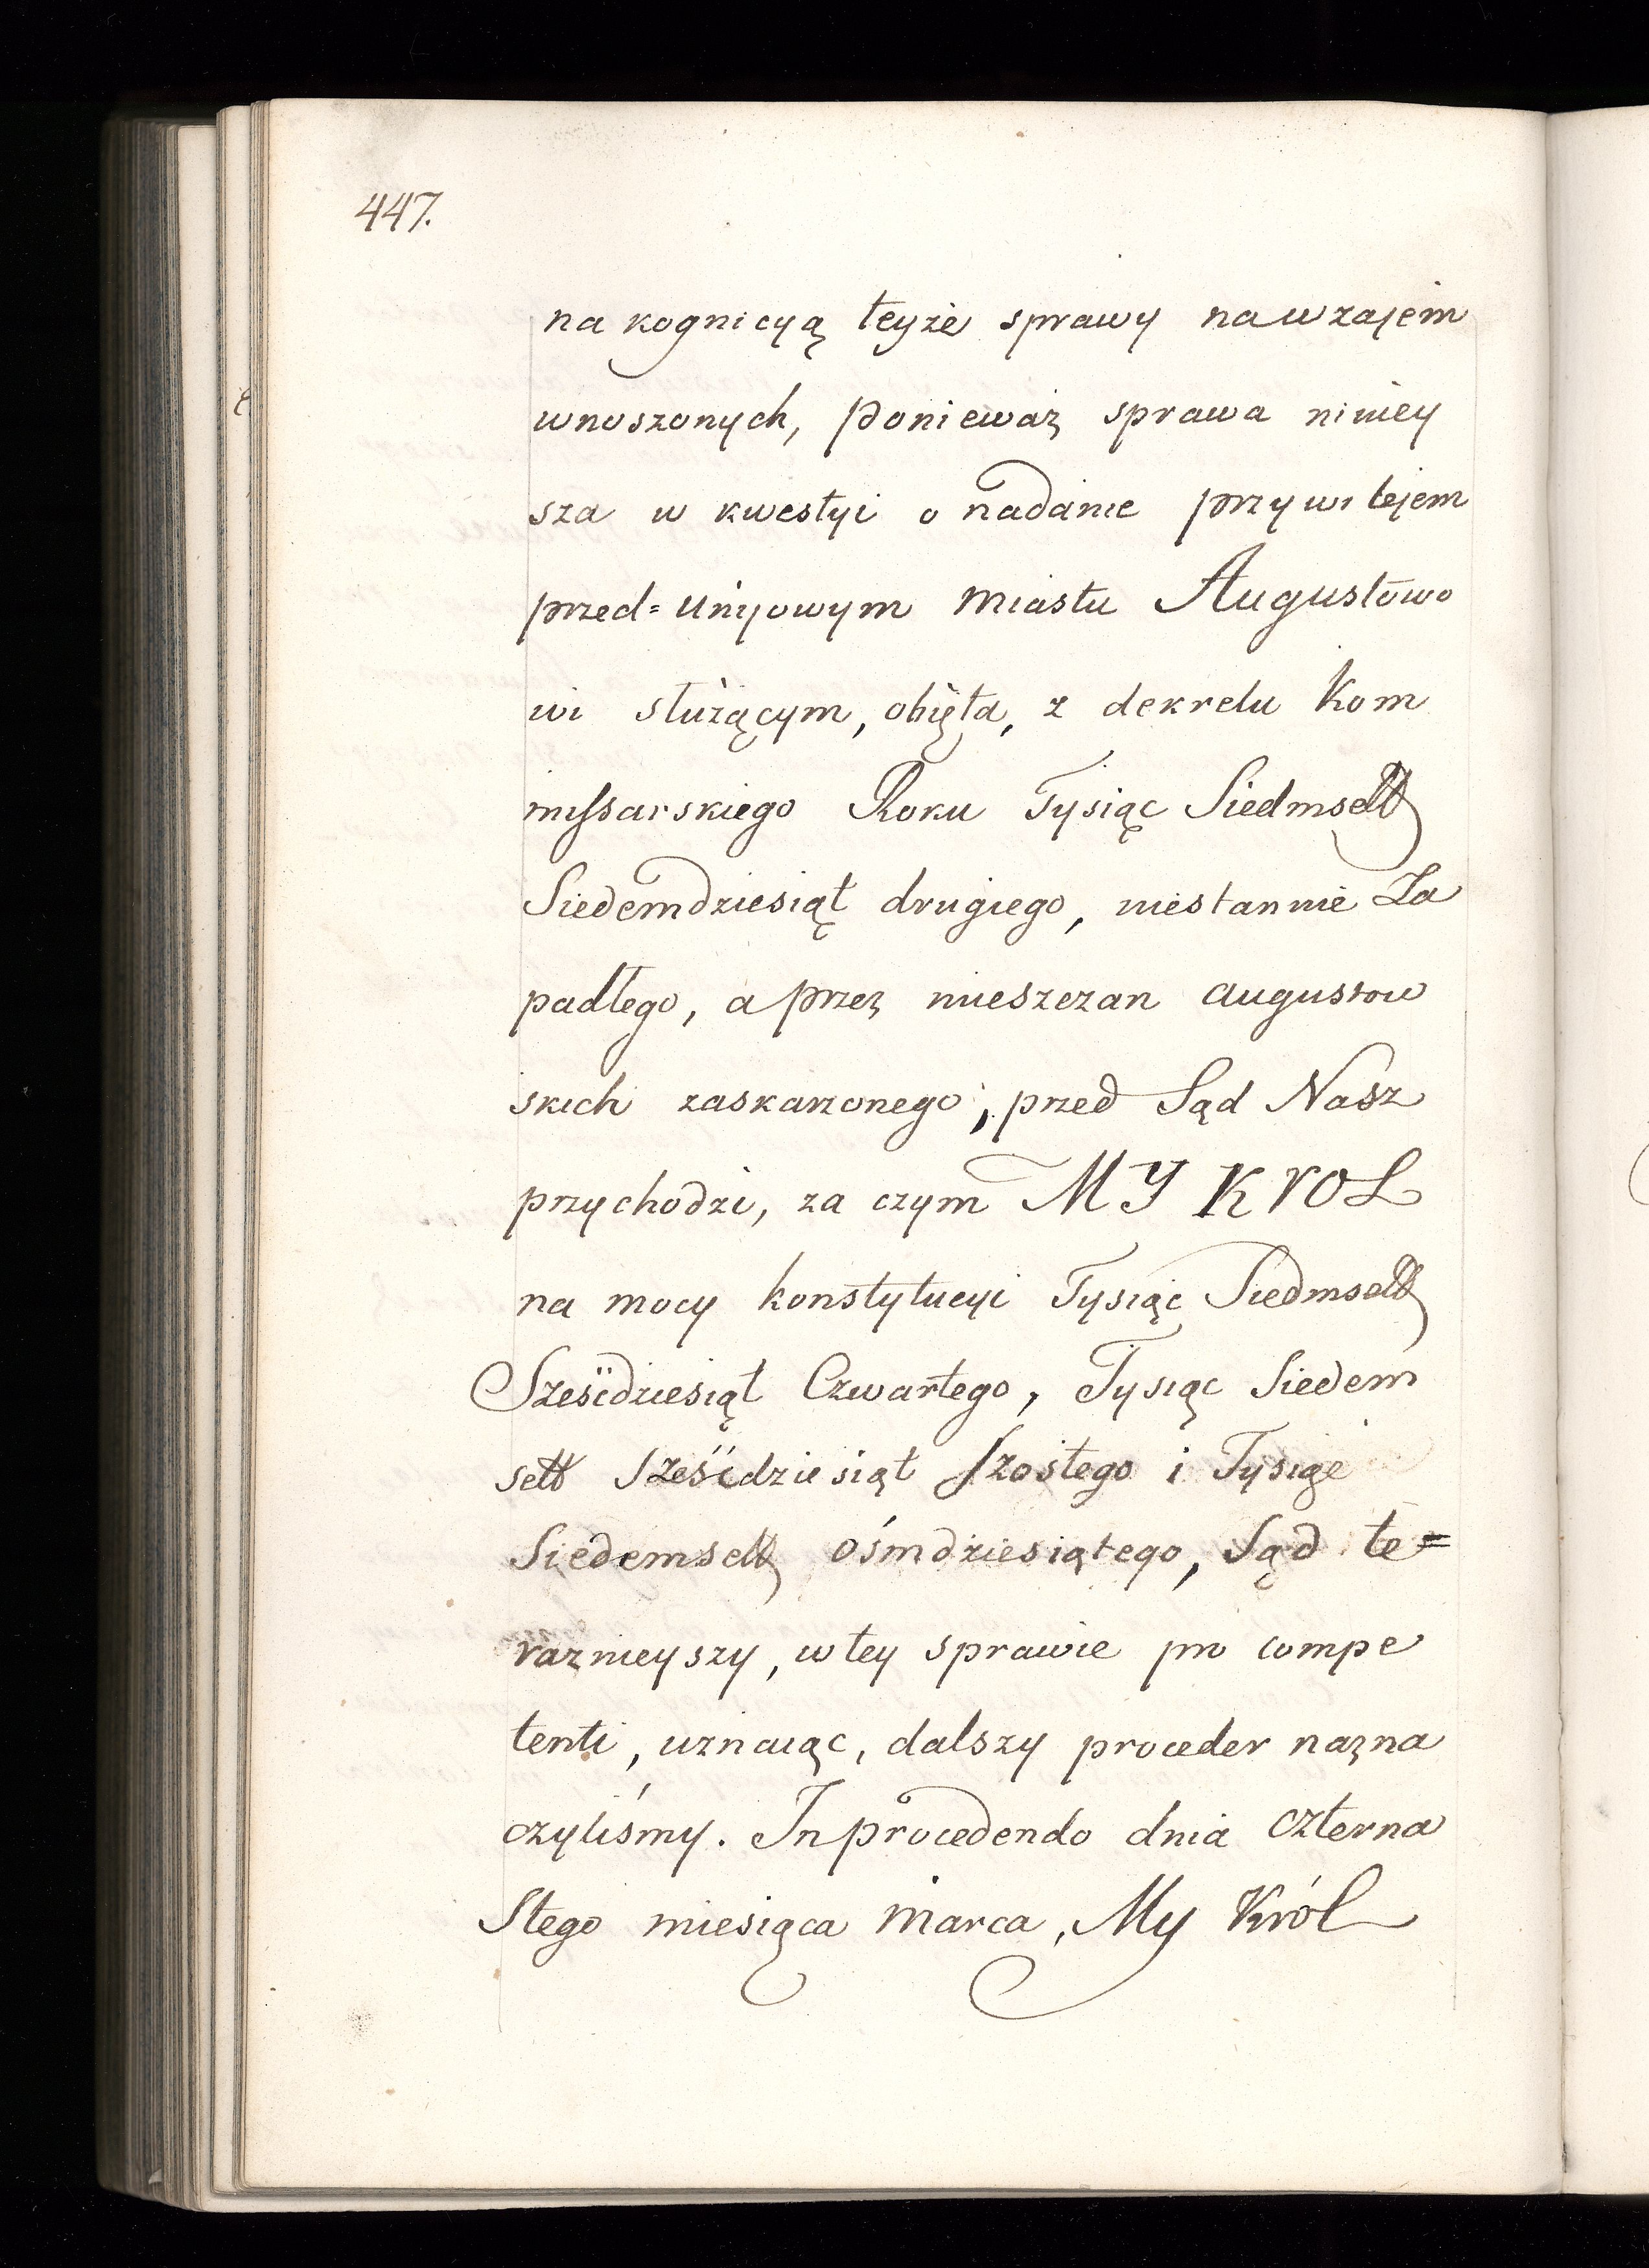 447.
na kognicyą teyże sprawy nawzajem
wnoszonych, ponieważ sprawa niniey
sza w kwestyi o nadanie przywilejem
przed=unyowym miastu Augustowo
wi służącym, objęta, z dekretu Kom
missarskiego Roku Tysiąc Siedmset
Siedemdziesiąt drugiego, niestannie Za
padłego, a przez mieszczan augustow
skich zaskarzonego, przed Sąd Nasz
przychodzi, za czym MY KROL
na mocy konstytucyi Tysiąc Siedmset
Sześćdziesiąt Czwartego, Tysiąc Siedem
set Sześćdziesiąt Szostego i Tysiąc
Siedemset ośmdziesiątego, Sąd te=
raznieyszy, w tey sprawie pro compe
tenti, uznaiąc, dalszy proceder nazna
czyliśmy. In procedendo dnia czterna
Stego miesiąca marca, My Król